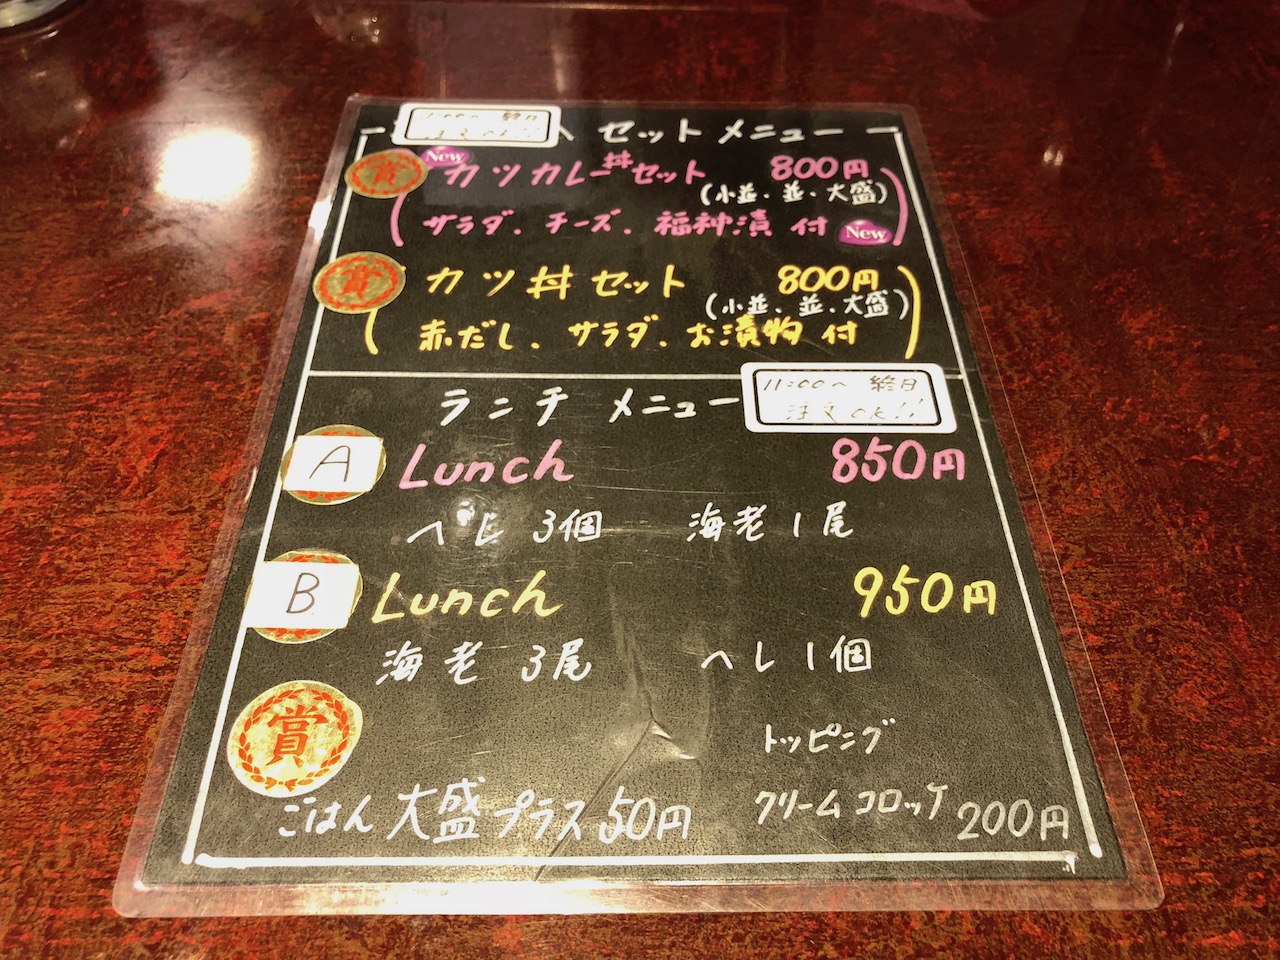 11:00〜 終日
注文OK!!
セットメニュー
賞 New カツカレー丼セット 800円
(小並・並・大盛)
サラダ、チーズ、福神漬 付 New
賞 カツ丼セット 800円
(小並、並・大盛)
赤だし、サラダ、お漬物 付
ランチ メニュー
11:00〜 終日
注文OK!!
A Lunch 850円
ヘレ 3個 海老 1尾
B Lunch 950円
海老 3尾 ヘレ 1個
賞
トッピング
ごはん 大盛 プラス 50円
クリームコロッケ 200円